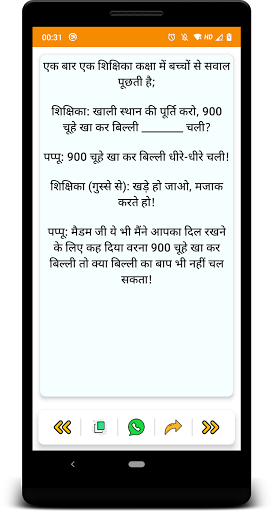 00:31
HD
एक बार एक शिक्षिका कक्षा में बच्चों से सवाल
पूछती है;
शिक्षिका: खाली स्थान की पूर्ति करो, 900
चूहे खा कर बिल्ली _______ चली?
पप्पू: 900 चूहे खा कर बिल्ली धीरे-धीरे चली!
शिक्षिका (गुस्से से): खड़े हो जाओ, मजाक
करते हो!
पप्पू: मैडम जी ये भी मैंने आपका दिल रखने
के लिए कह दिया वरना 900 चूहे खा कर
बिल्ली तो क्या बिल्ली का बाप भी नहीं चल
सकता!